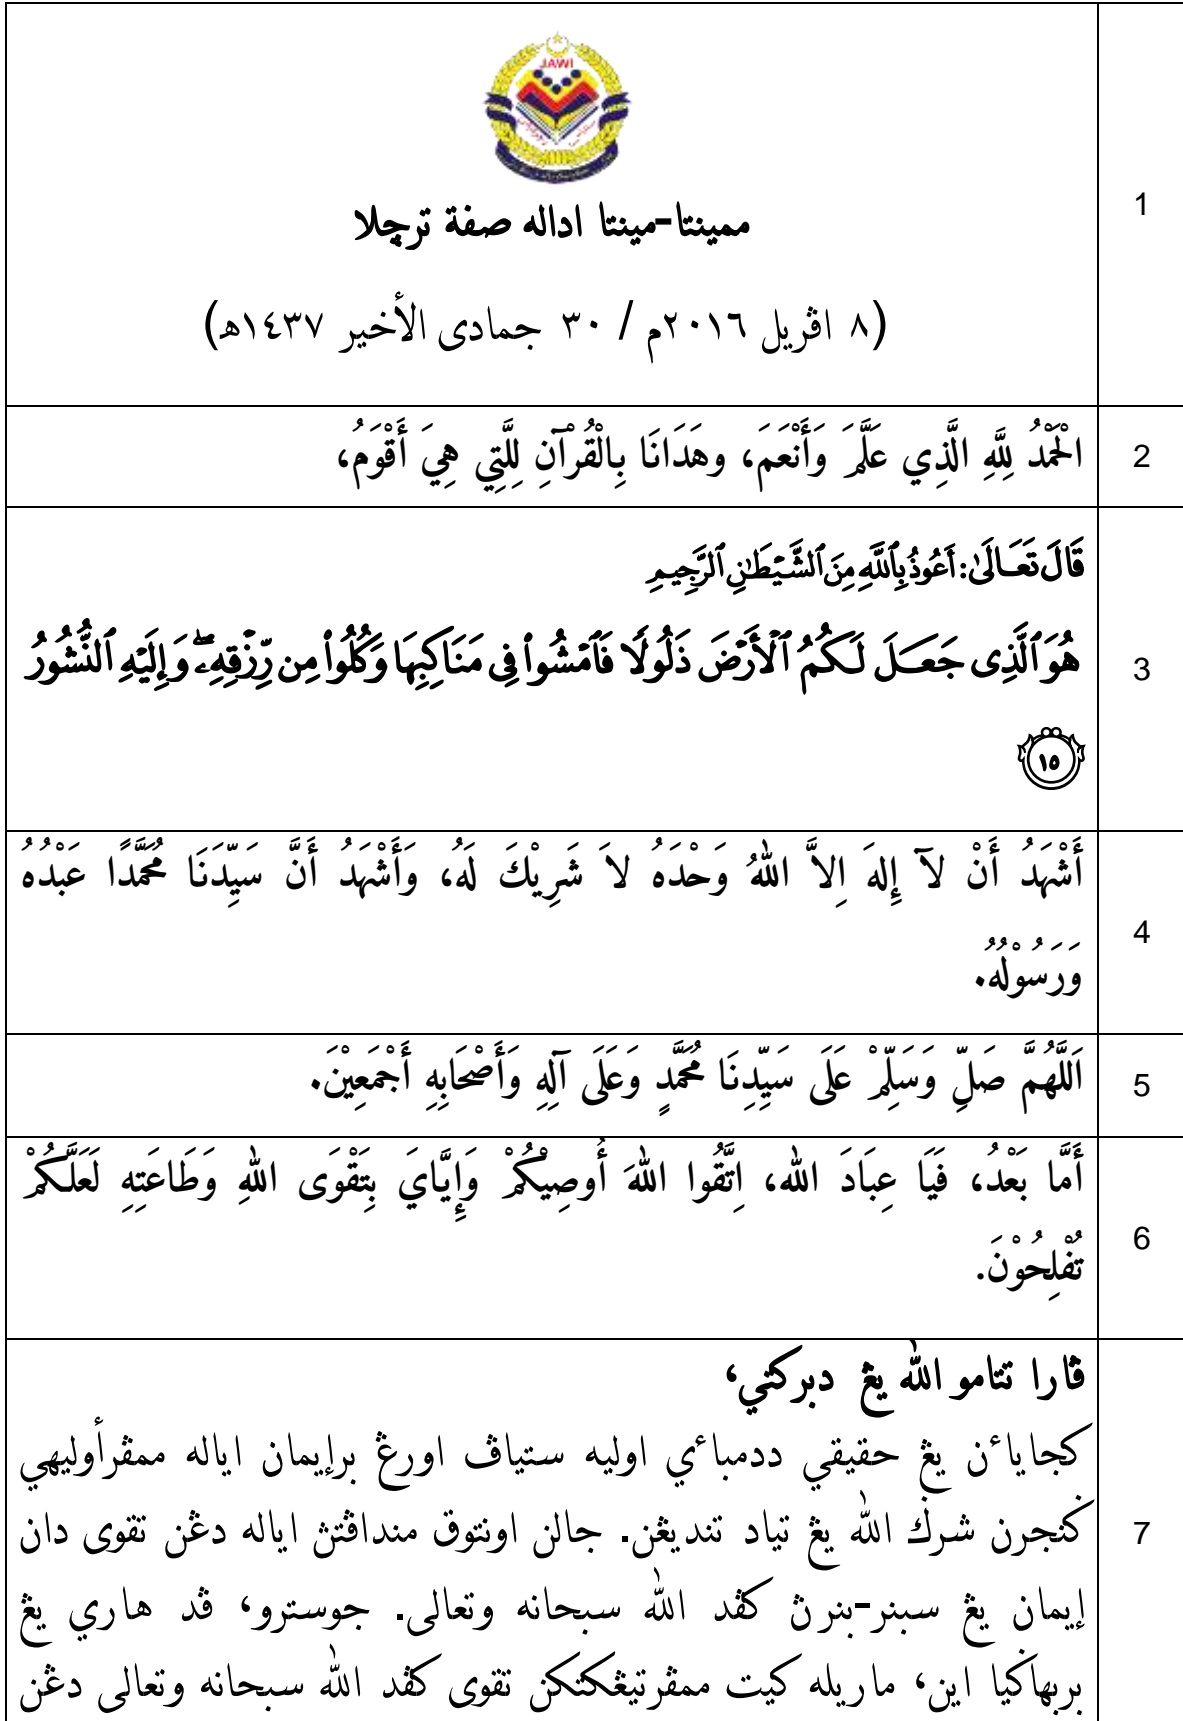 JAWI
1
ممينتا-مينتا اداله صفة ترچلا
(٨ اڤريل ٢٠١٦م / ٣٠ جمادى الأخير ١٤٣٧هـ)
2
الْحَمْدُ لِلَّهِ الَّذِي عَلَّمَ وَأَنْعَمَ، وهَدَانَا بِالْقُرْآنِ لِلَّتِي هِيَ أَقْوَمُ،
3
قَالَ تَعَالَىٰ: أَعُوذُ بِٱللَّهِ مِنَ ٱلشَّيْطَٰنِ ٱلرَّجِيمِ
هُوَ ٱلَّذِى جَعَلَ لَكُمُ ٱلْأَرْضَ ذَلُولًا فَٱمْشُوا۟ فِى مَنَاكِبِهَا وَكُلُوا۟ مِن رِّزْقِهِۦ ۖ وَإِلَيْهِ ٱلنُّشُورُ
١٥
4
أَشْهَدُ أَنْ لآ إِلهَ اِلاَّ اللهُ وَحْدَهُ لاَ شَرِيْكَ لَهُ، وَأَشْهَدُ أَنَّ سَيِّدَنَا مُحَمَّدًا عَبْدُهُ
وَرَسُوْلُهُ.
5
اَللَّهُمَّ صَلِّ وَسَلِّمْ عَلَى سَيِّدِنَا مُحَمَّدٍ وَعَلَى آلِهِ وَأَصْحَابِهِ أَجْمَعِيْنَ.
6
أَمَّا بَعْدُ، فَيَا عِبَادَ الله، اِتَّقُوا اللهَ أُوصِيْكُمْ وَإِيَّايَ بِتَقْوَى اللهِ وَطَاعَتِهِ لَعَلَّكُمْ
تُفْلِحُوْنَ.
7
ڤارا تتامو الله يڠ دبركتي،
كجاياءن يڠ حقيقي ددمباءي اوليه ستياڤ اورڠ برإيمان اياله ممڤرأوليهي
ݢنجرن شرݢ الله يڠ تياد تنديڠن. جالن اونتوق منداڤتڽ اياله دڠن تقوى دان
إيمان يڠ سبنر-بنرڽ كڤد الله سبحانه وتعالى. جوسترو، ڤد هاري يڠ
بربهاݢيا اين، ماريله كيت ممڤرتيڠكتكن تقوى كڤد الله سبحانه وتعالى دڠن